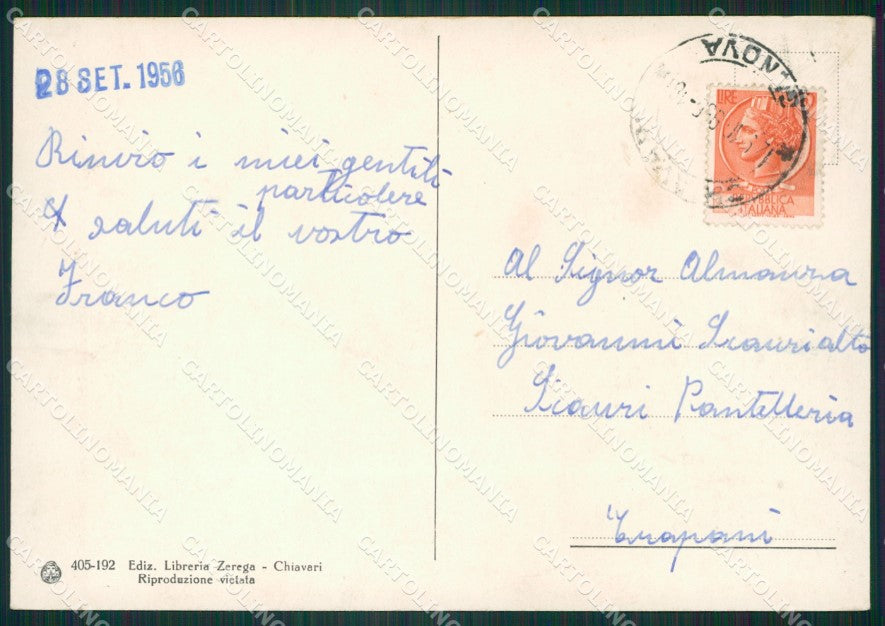 28 SET. 1956
Rinvio i miei gentili
particolere
saluti il vostro
Franco
GENOVA
LIRE
REPUBBLICA
ITALIANA
Al Signor Almanza
Giovanni Scaurialto
Scauri Pantelleria
Trapani
405-192 Ediz. Libreria Zerega - Chiavari
Riproduzione vietata
CARTOLINOMANIA